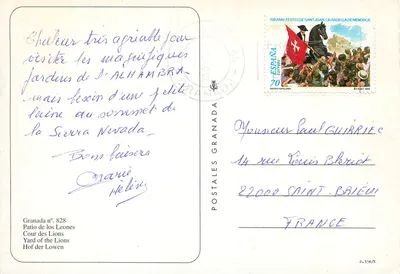 Chaleur très agréable pour
visiter les magnifiques
jardins de l'ALHAMBRA
mais besoin d'une petite
laine au sommet de
la Sierra Nevada.
Bons baisers
Marie
Hélène
Granada nº. 828
Patio de los Leones
Cour des Lions
Yard of the Lions
Hof der Lowen
POSTALES GRANADA
ESPAÑA
Monsieur Paul GUIRRIEC
14 rue Louis Blériot
22000 SAINT. BRIEUC
FRANCE